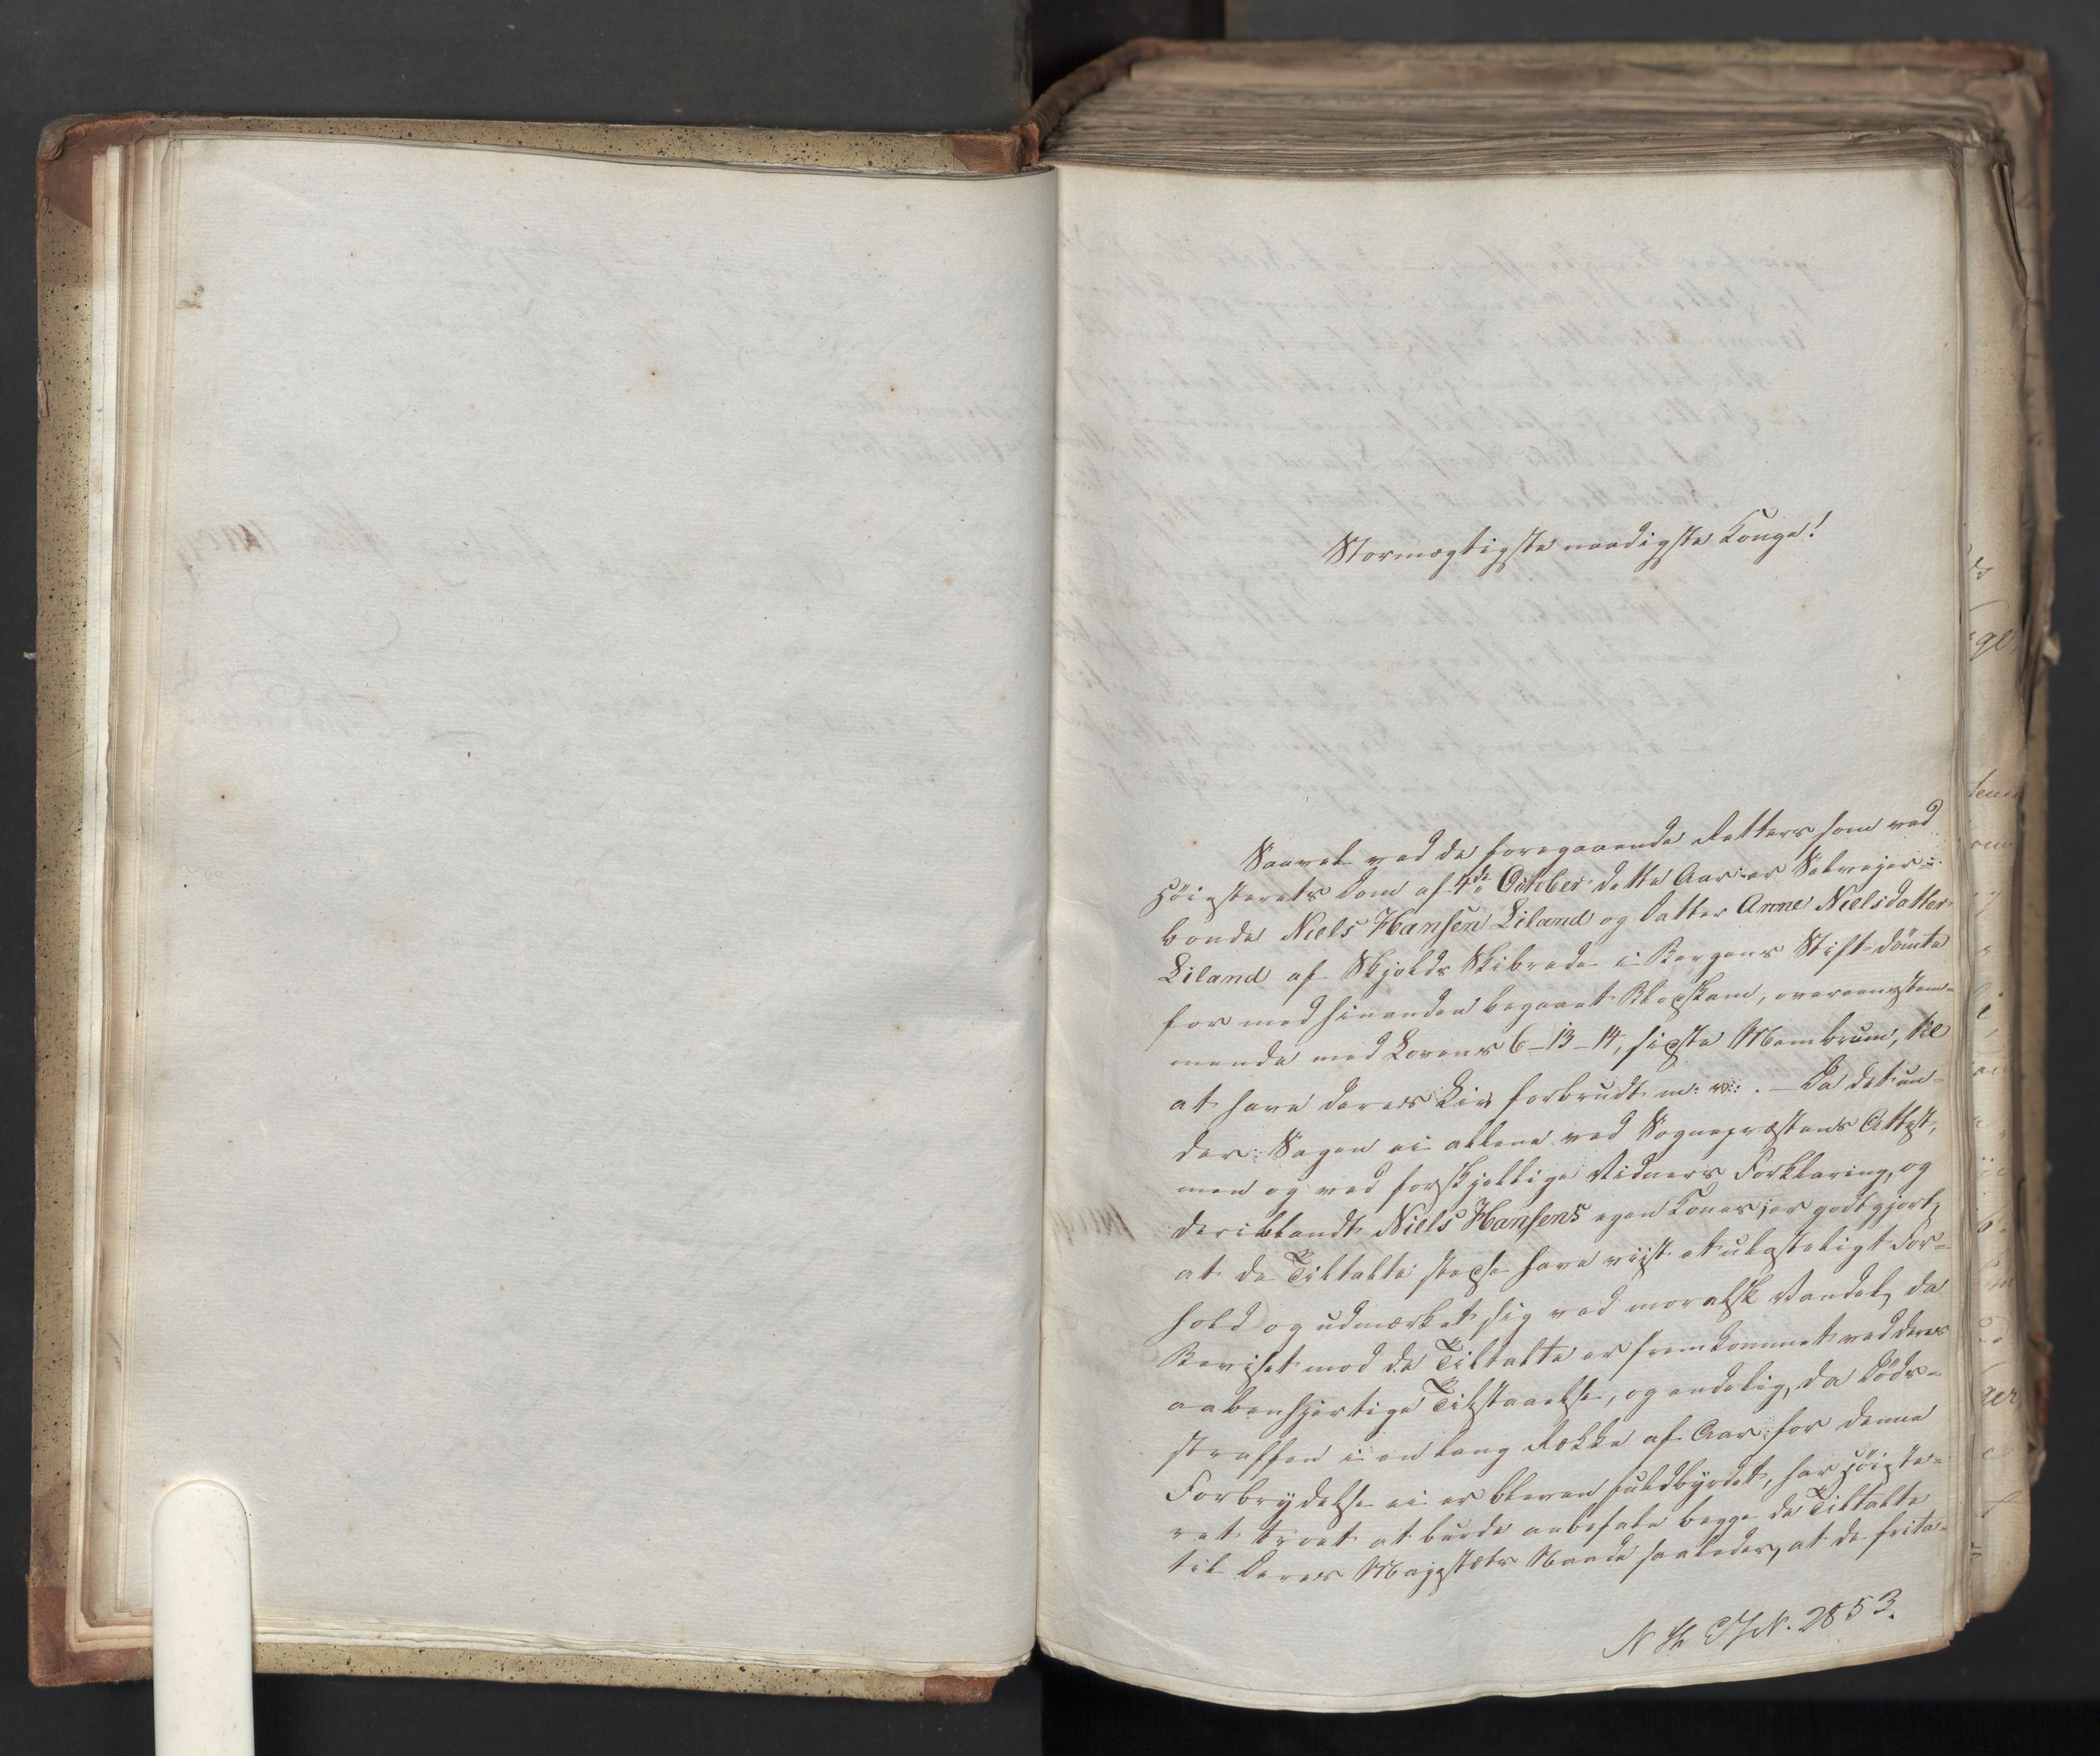 Stormægtigste naadigste Konge!
Saavel ved de foregaaende Retters som ved
Høiesterets Dom af 4de October dette Aar er Selveier-
bonde Niels Hansen Liland og Datter Anne Nielsdatter
Liland af Skjolds Skibrede i Bergens Stift dömte
for med hinanden begaaet Blodskam, overeensstem-
mende med Lovens 6-13-14, sidste Membrum, til
at have deres Liv forbrudt m: v: . - Da det un-
der Sagen ei allene ved Sognepræstens Attest,
men og ved forskjellige Vidners Forklaring, og
deriblandt Niels Hansens egen Kones, er godtgjort,
at de Tiltalte stedse have viist et ulasteligt For-
hold og udmærket sig ved moralsk Vandel, da
Beviset mod de Tiltalte er fremkommet ved deres
aabenhjertige Tilstaaelse, og endelig, da Döds-
straffen i en lang Række af Aar for denne
Forbrydelse ei er bleven fuldbyrdet, har Höieste-
ret troet at burde anbefale begge de Tiltalte
til Deres Majestæts Naade saaledes, at de frita-
N. 2853.